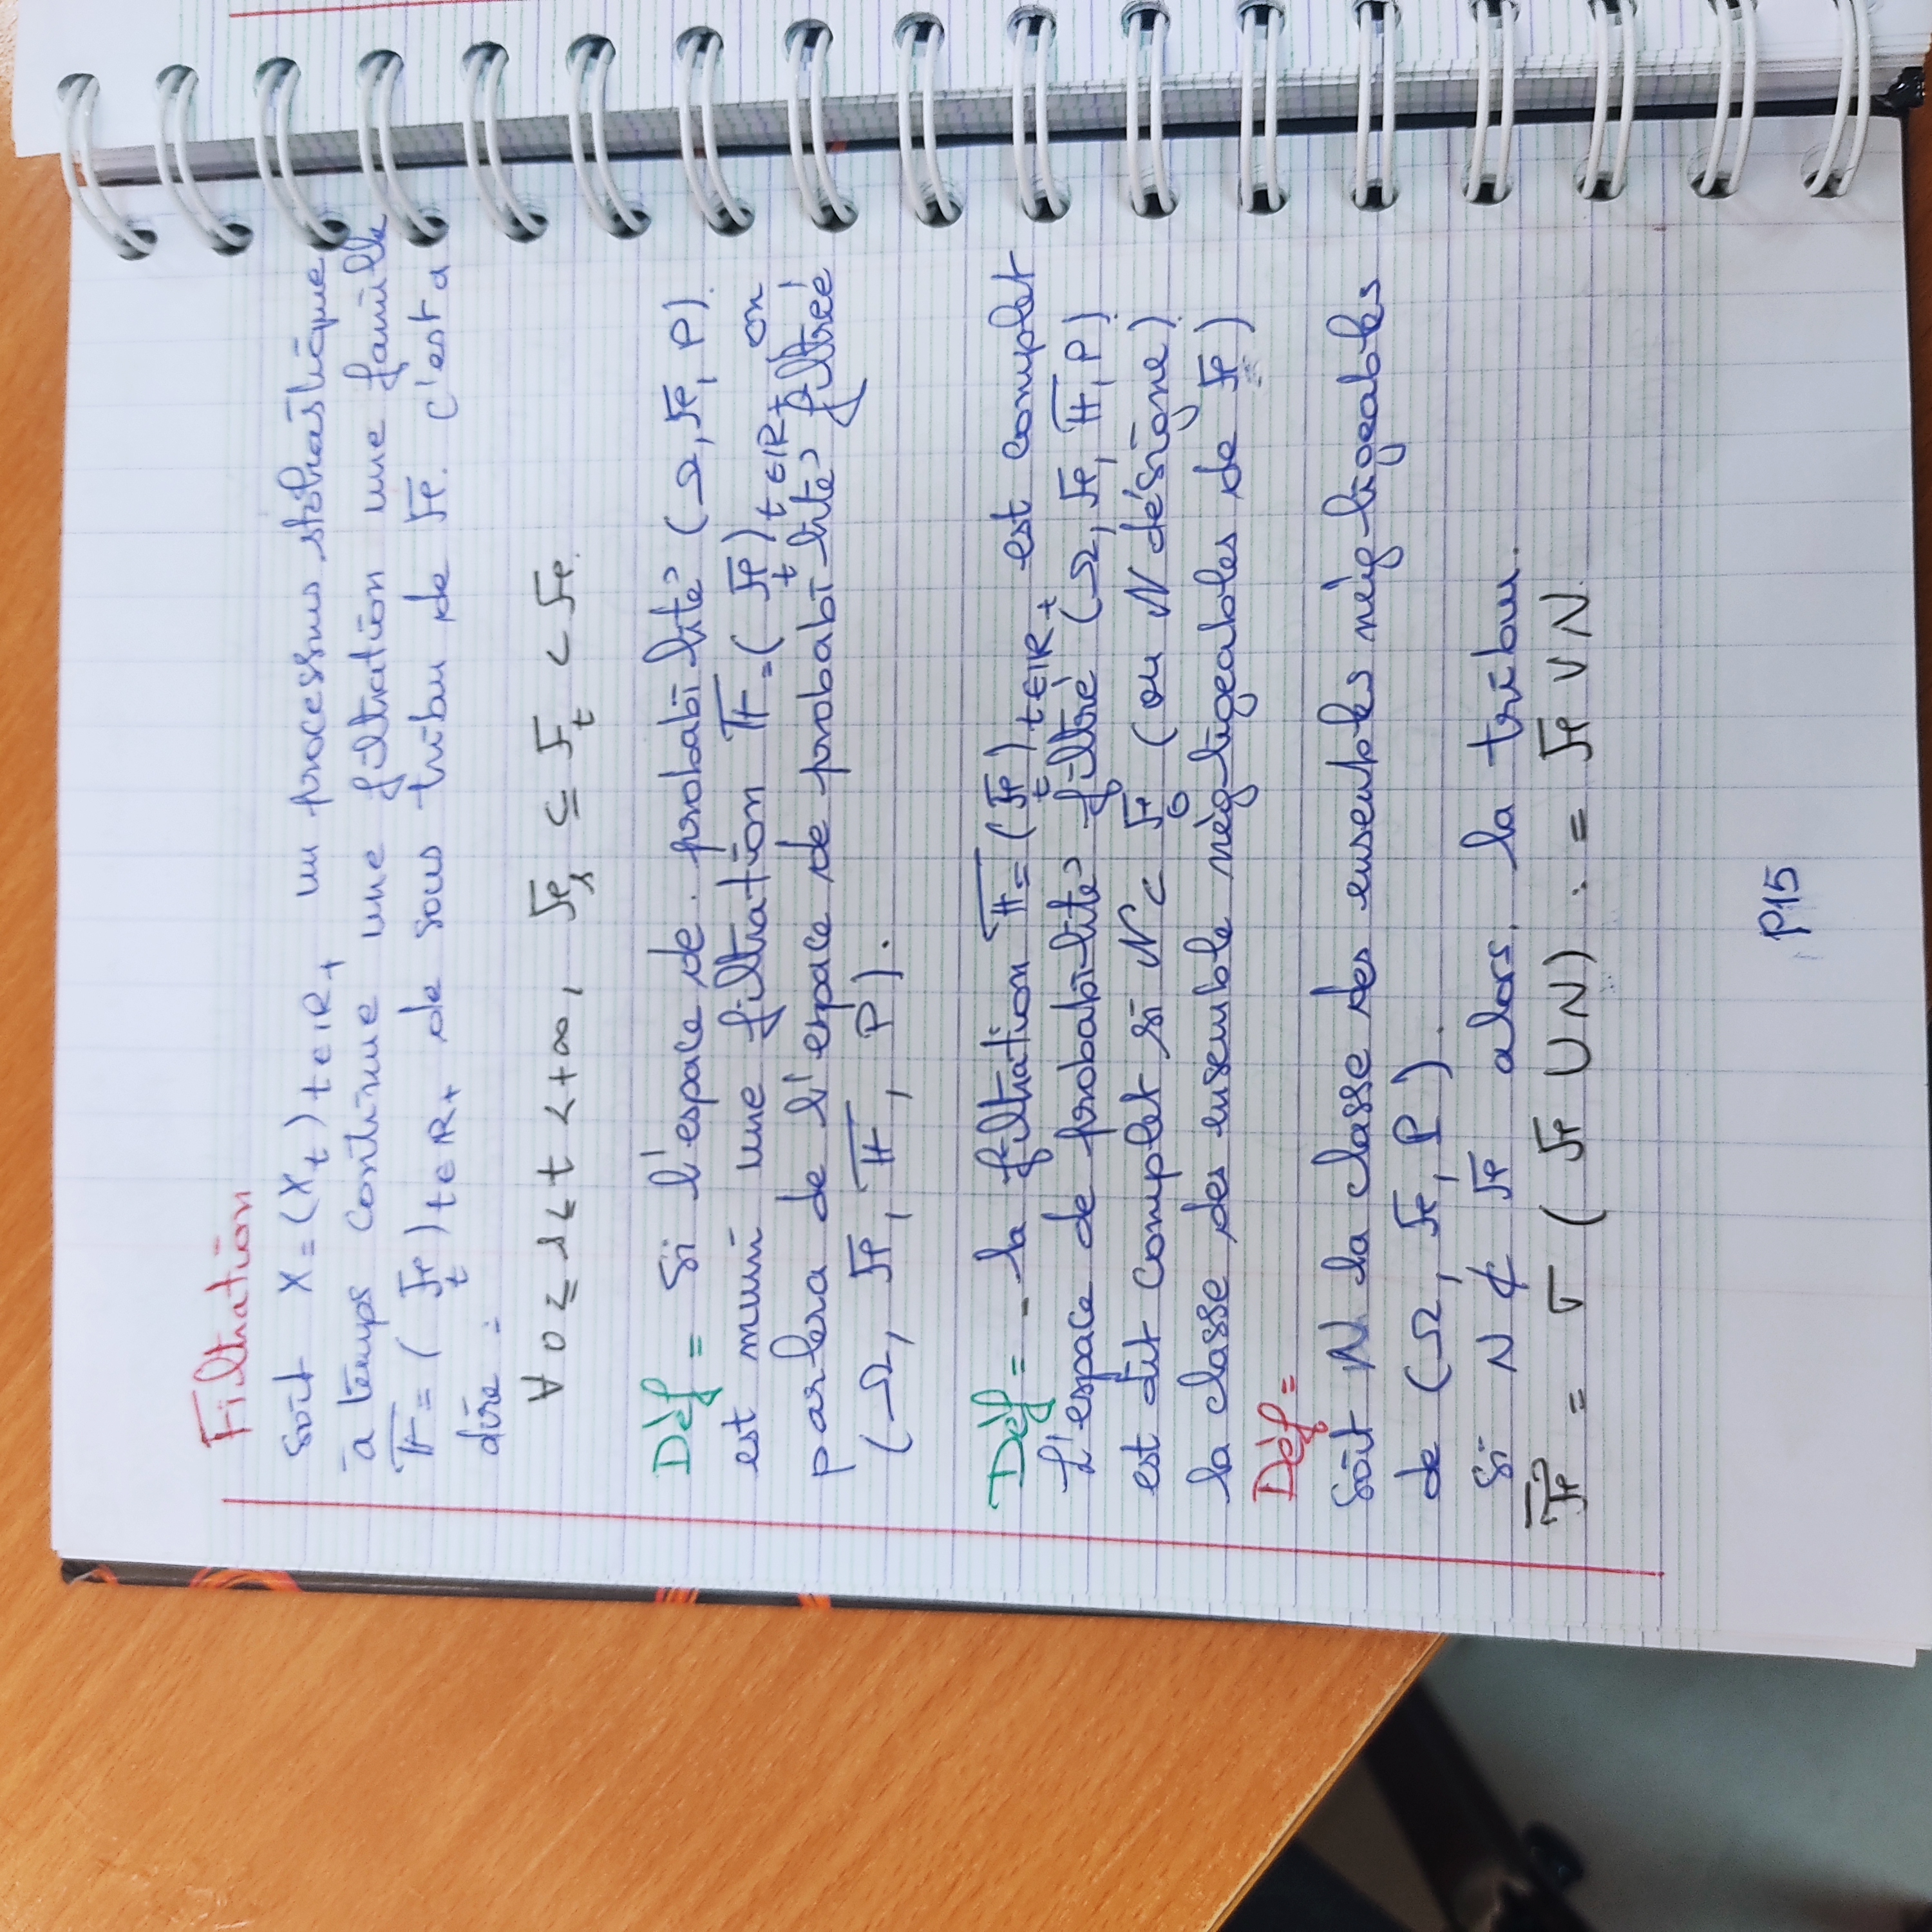 Filtration
soit X = (X_t)_{t∈IR+} un processus stochastique
à temps continue une filtration une famille
𝔽 = (ℱ_t)_{t∈IR+} de sous tribu de ℱ. c'est a
dire :
∀ 0 ≤ s ≤ t < +∞, ℱ_s ⊆ F_t ⊂ ℱ.
Dèf = Si l'espace de probabilité (Ω, ℱ, P).
est muni une filtration 𝔽 = (ℱ_t)_{t∈IR+}, on
parlera de l'espace de probabilité filtreé
(Ω, ℱ, 𝔽, P).
Dèf = - la filtration 𝔽 = (ℱ_t)_{t∈IR+} est complet
L'espace de probabilité filtré (Ω, ℱ, 𝔽, P)
est dit complet si N ⊂ ℱ_0 (ou N désigne)
la classe des ensemble nègligeables de ℱ)
Dèf =
Soit N la classe des ensembles nègligeables
de (Ω, ℱ, P).
Si N ⊄ ℱ alors. la tribu.
ℱ̅ = σ ( ℱ ∪ N) := ℱ ∨ N.
P15